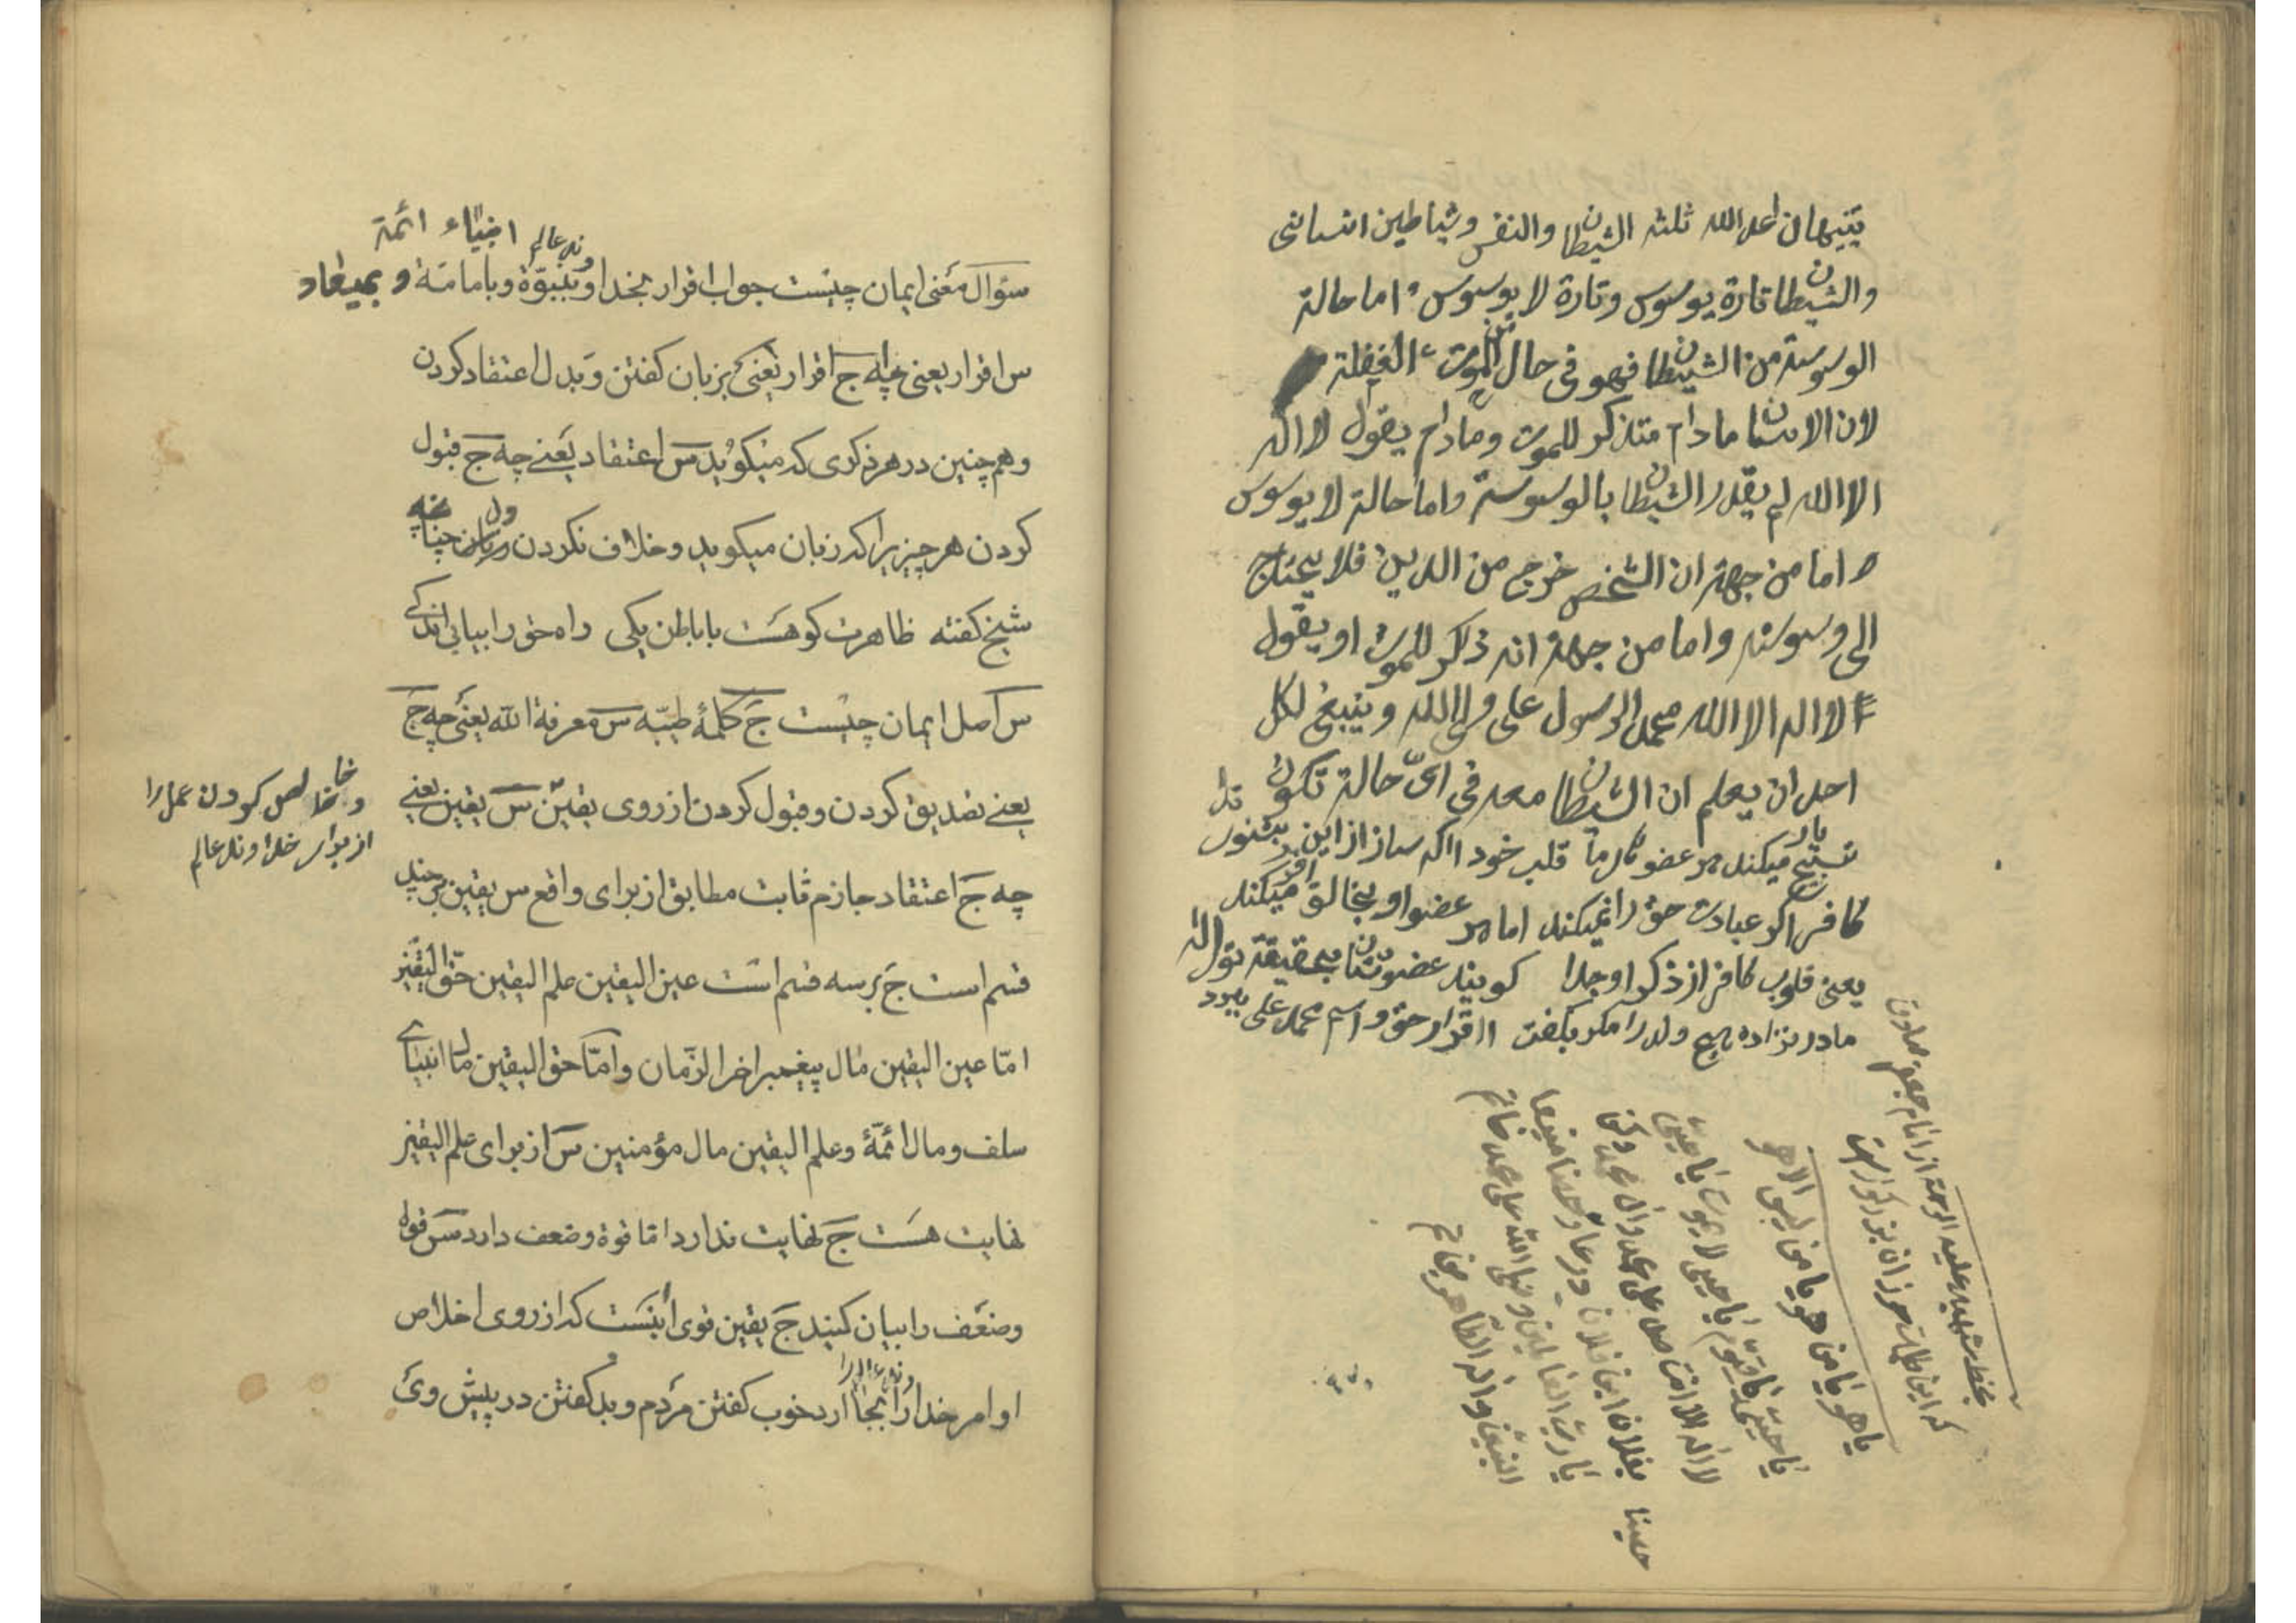 تنبيهات اعد الله ثلثه الشيطان والنفس وشياطين انسانى
والشيطان تارة يوسوس وتارة لا يوسوس اما حالة
الوسوسة من الشيطان فهو فى حال الغفلة
لان الانسان مادام متذكر للموت ومادام يقول لا اله
الا الله لم يقدر الشيطان بالوسوسة واما حالة لا يوسوس
اما من جهة ان الشخص خرج من الدين فلا يحتاج
الى وسوسته واما من جهة انه ذاكر للموت او يقول
لا اله الا الله محمد الرسول على ولى الله وينبغى لكل
احد ان يعلم ان الشيطان معه فى اىّ حالة تكون
تسبيح ميكند هر عضو قلب خود ا اكه ساز از اين بشنو
كافر اكر عبادت حق را نميكند اما هر عضو او بخالق ميكند
يعنى قلوب كافر از ذكر او جدا كويند عضوشان بحقيقة
مادر نزاده هيچ ولد را مكر بكفت ا اقرار حق و اسم محمد على
بخط شهيد عليه الرحمة از امام جعفر صادق
كه اين حرز
يا هو يا من هو يا من ليس الا هو
يا حى يا قيوم يا حى لا يموت يا حى
لا اله الا انت صل على محمد وآل محمد وكن
بفلان ابن فلان درعا وحصنا منيعا
يا رب العالمين وصلى الله على محمد خاتم
النبيين وآله الطاهرين
حصينا
انبياء ائمة
وند عالم
سؤال معنى ايمان چيست جواب اقرار بخدا وبنبوّة وبامامة و بميعاد
س اقرار يعنى چه ج اقرار يعنى بزبان كفتن و بدل اعتقاد كردن
وهم چنين در هر ذكرى كه ميكويد س اعتقاد يعنى چه ج قبول
كردن هر چيز يرا كه زبان ميكويد و خلاف نكردن دل چنانچه
شيخ كفته ظاهرت كو هست با باطن يكى راه حق را بيابى اندكى
س اصل ايمان چيست ج كلمۀ طيّبه س معرفة الله يعنى چه ج
يعنى تصديق كردن و قبول كردن از روى يقين س يقين يعنى
و خالص كردن عمل را
از براى خداوند عالم
چه ج اعتقاد جازم ثابت مطابق از براى واقع س يقين بر چند
قسم است ج بر سه قسم است عين اليقين علم اليقين حقّ اليقين
امّا عين اليقين مال پيغمبر اخر الزّمان و امّا حق اليقين مال انبياى
سلف و مال ائمّۀ و علم اليقين مال مؤمنين س از براى علم اليقين
نهايت هست ج نهايت ندارد اما قوة و ضعف دارد س قوة
و ضعف را بيان كنيد ج يقين قوى آنست كه از روى اخلاص
اوامر خداوند عالم را بجا آرد خوب كفتن مردم و بد كفتن در پيش وى